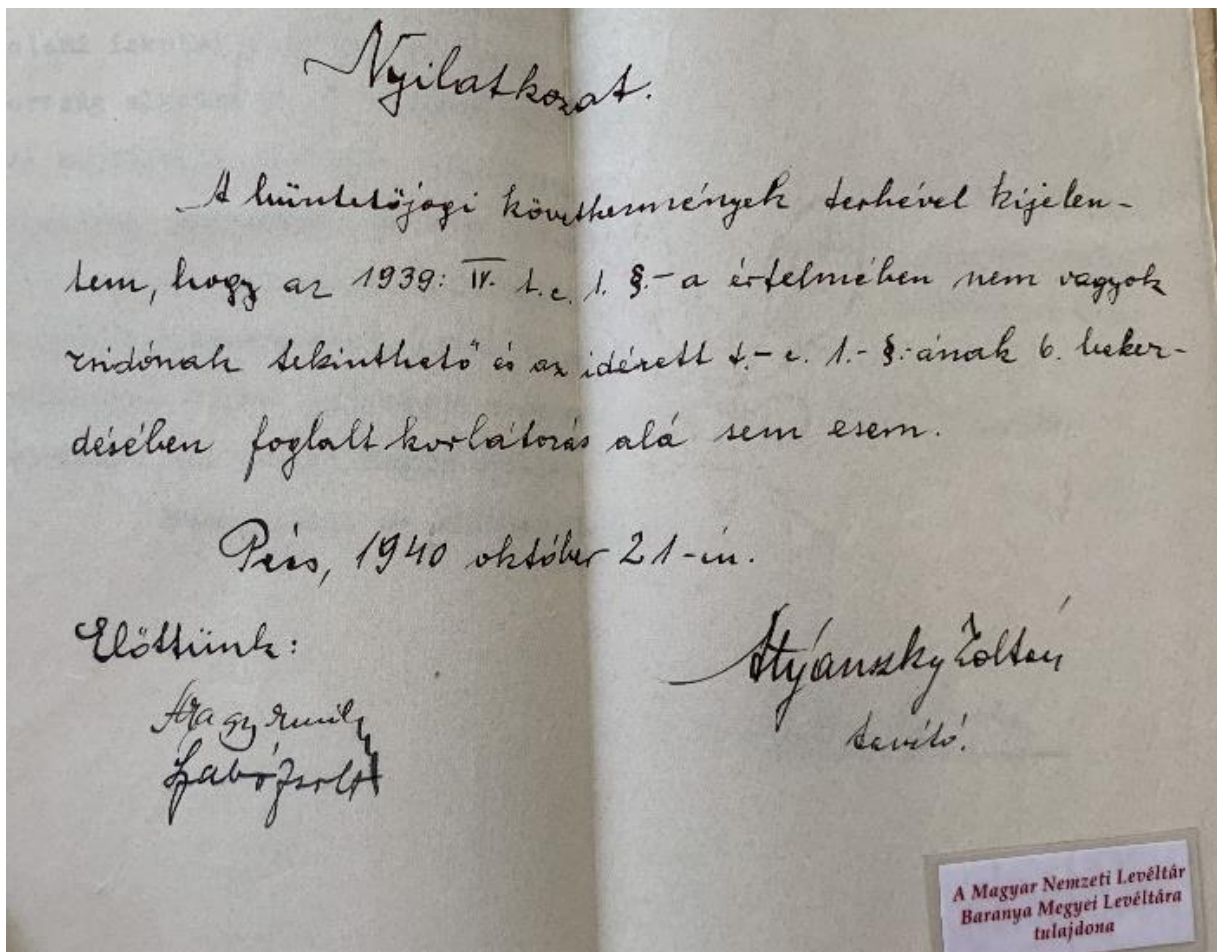 Nyilatkozat.
A büntetőjogi következmények terhével kijelen-
tem, hogy az 1939: IV. t.c. 1. §.-a értelmében nem vagyok
zsidónak tekinthető és az idézett t.-c. 1.- §.-ának 6. bekez-
désében foglalt korlátozás alá sem esem.
Pécs, 1940 október 21-én.
Előttünk:
Styánszky Zoltán
tanító.
Nagy Emil
Szabó Zsolt
A Magyar Nemzeti Levéltár
Baranya Megyei Levéltára
tulajdona